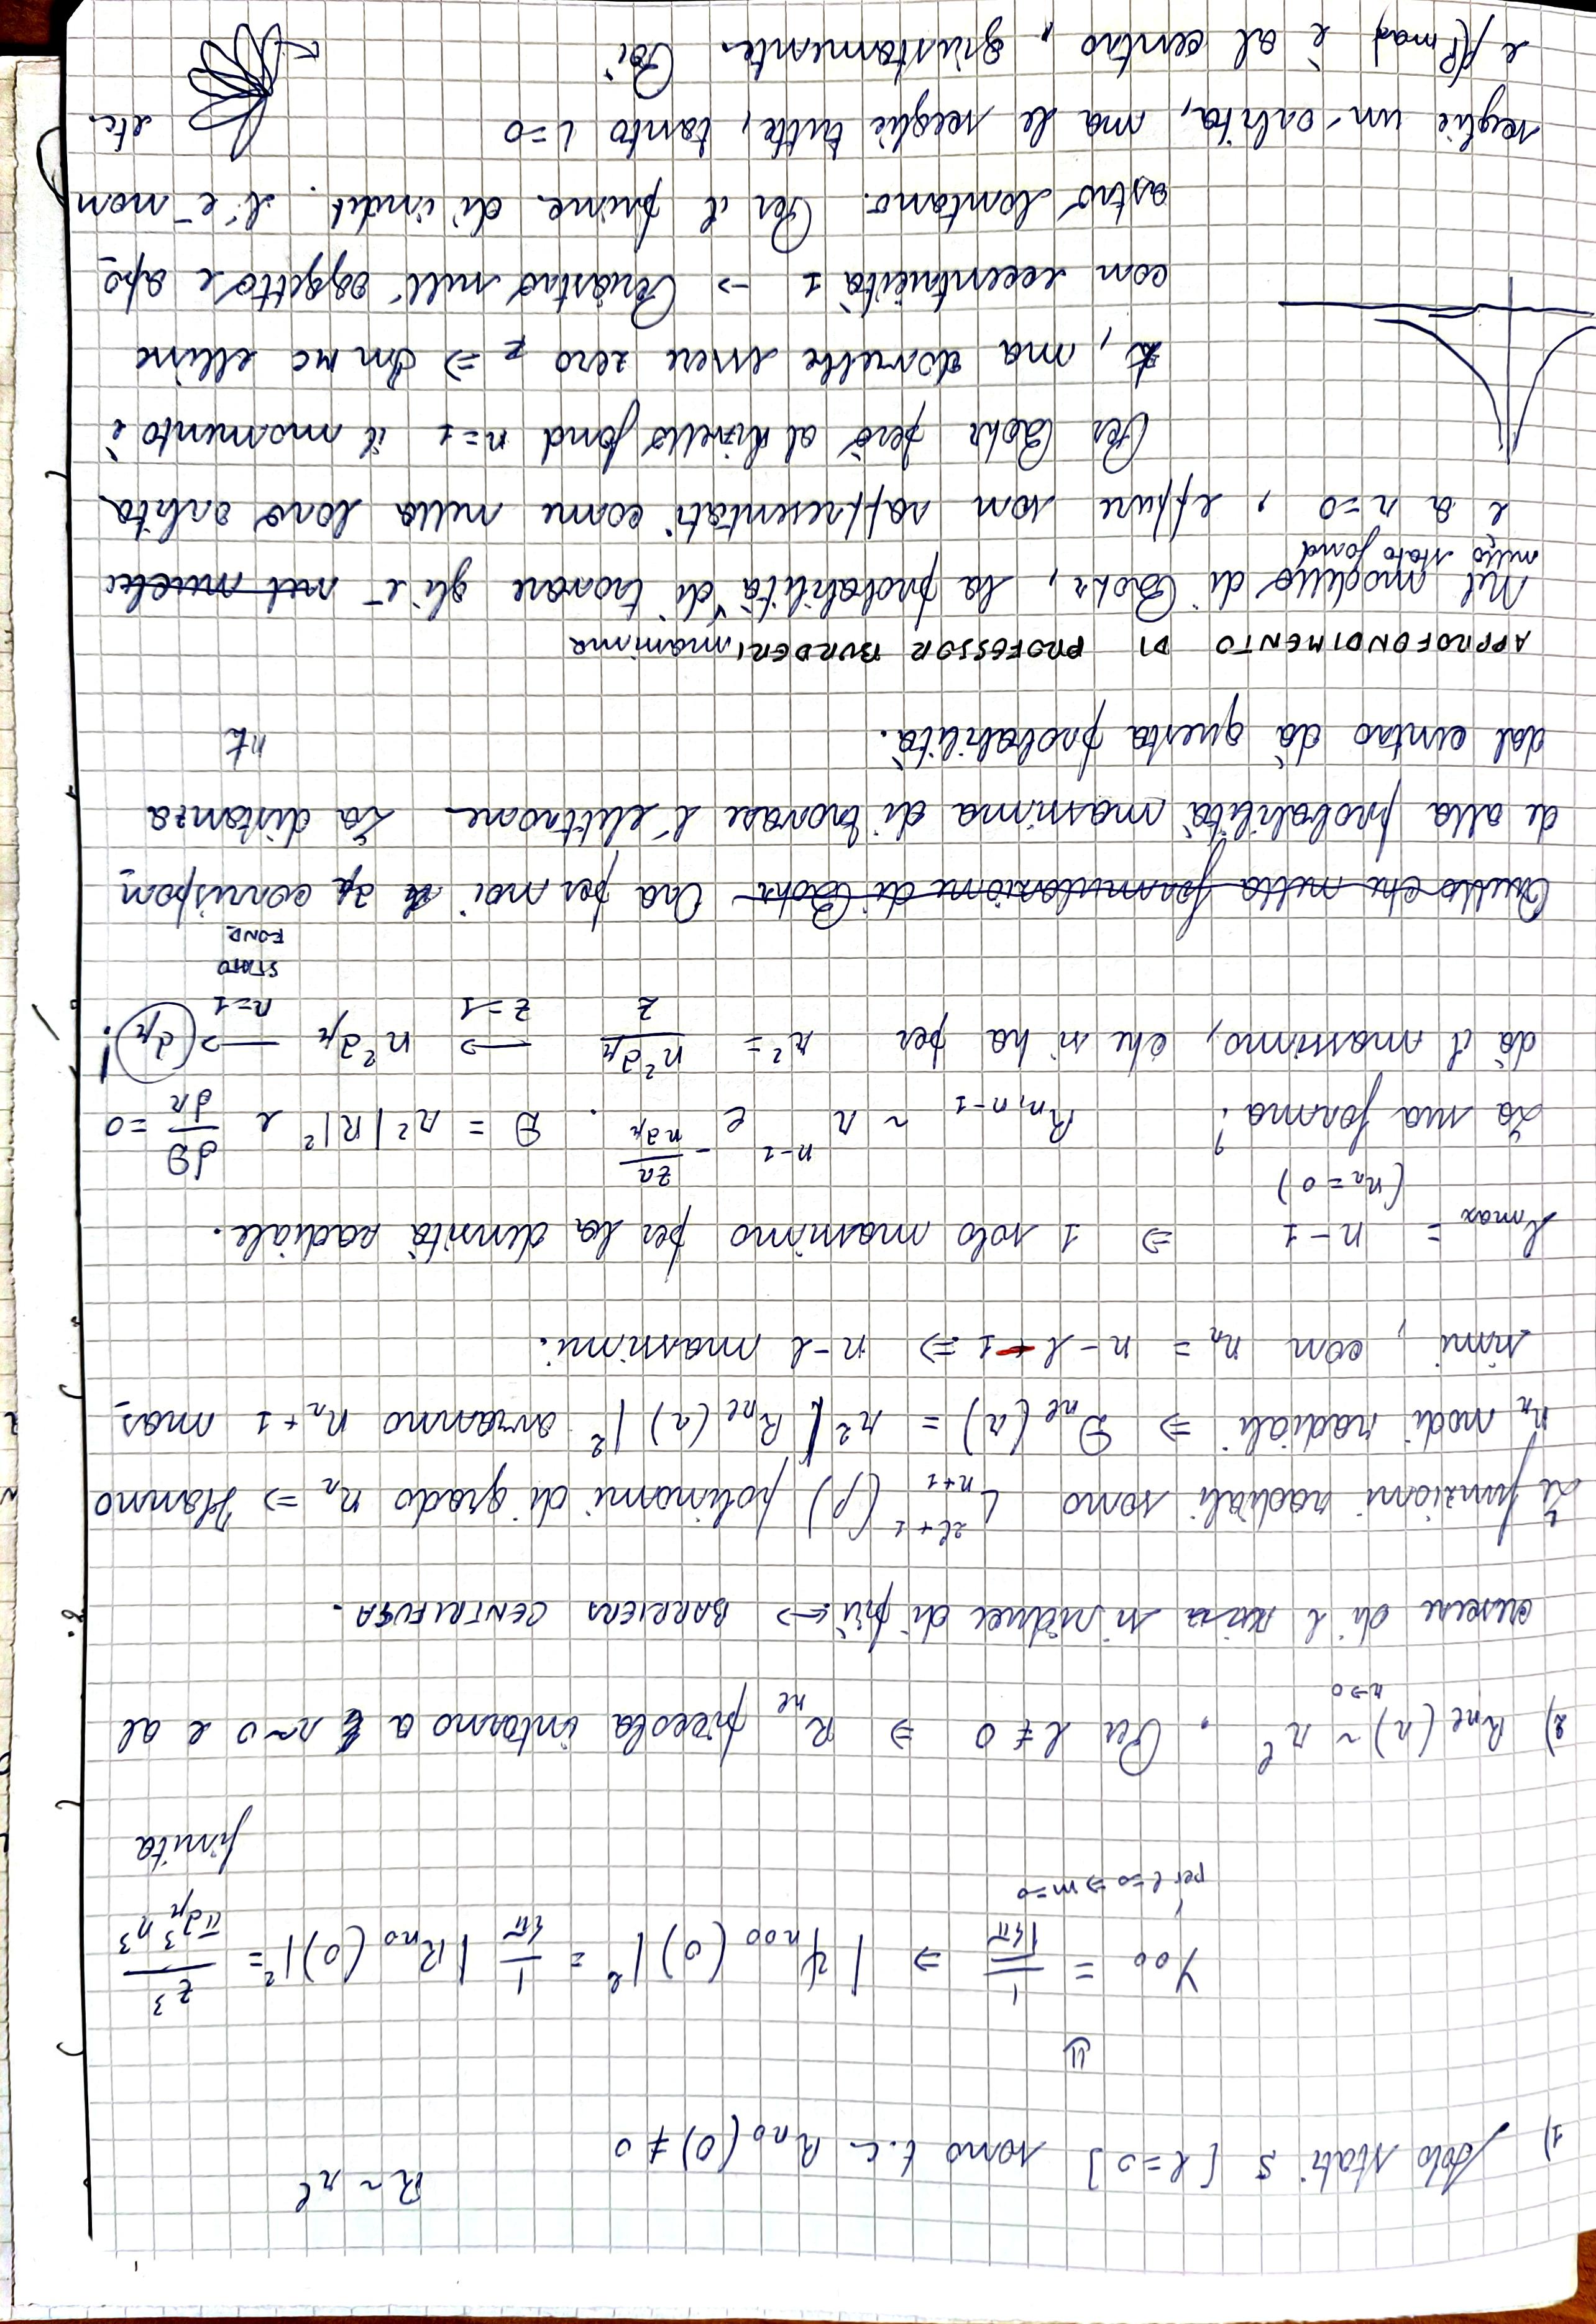 R ~ r^l
1) Solo stati s [l=0] sono t.c. R_{n0}(0) ≠ 0
⇓
Y_{00} = 1/√(4π) ⇒ |ψ_{n00}(0)|² = 1/(4π) |R_{n0}(0)|² = z³/(π a_μ³ n³)
per l=0 ⇒ m=0
finita
2) R_{nl}(r) ~ r^l . Per l ≠ 0 ⇒ R_{nl} piccola intorno a r~0 e al
r→0
crescere di l si riduce di più ↔ BARRIERA CENTRIFUGA.
Le funzioni radiali sono L_{n+1}^{2l+1}(ρ) polinomi di grado n_r ⇒ Hanno
n_r nodi radiali ⇒ D_{nl}(r) = r²|R_{nl}(r)|² avranno n_r + 1 mas-
simi, con n_r = n-l-1 ⇒ n-l massimi.
l_{max} = n-1 ⇒ 1 solo massimo per la densità radiale.
(n_r = 0)
La sua forma? R_{n,n-1} ~ r^{n-1} e^{-zr/(n a_μ)} . D = r²|R|² e dD/dr = 0
dà il massimo, che si ha per r² = n² a_μ/z → n² a_μ → a_μ!
z=1 n=1
STATO
FOND
Quello che nella formulazione di Bohr Ora per noi a_μ corrispon-
de alla probabilità massima di trovare l'elettrone. La distanza
dal centro dà questa probabilità. nħ
APPROFONDIMENTO DI PROFESSOR BURDERI massima
Nel modello di Bohr, la probabilità di trovare gli e⁻ nel nucle
nello stato fond
è a r=0, eppure son rappresentati come nella loro orbita
Per Bohr però al livello fond n=1 il momento è
ħ, ma dovrebbe essere zero ⇒ In MC ellisse
con eccentricità 1 → Periastro nell'oggetto e apo-
astro lontano. Per il princ. di indet. l'e⁻ non
sceglie un'orbita, ma le sceglie tutte, tanto L=0 etc.
e (P_{max}) è al centro, giustamente. Poi